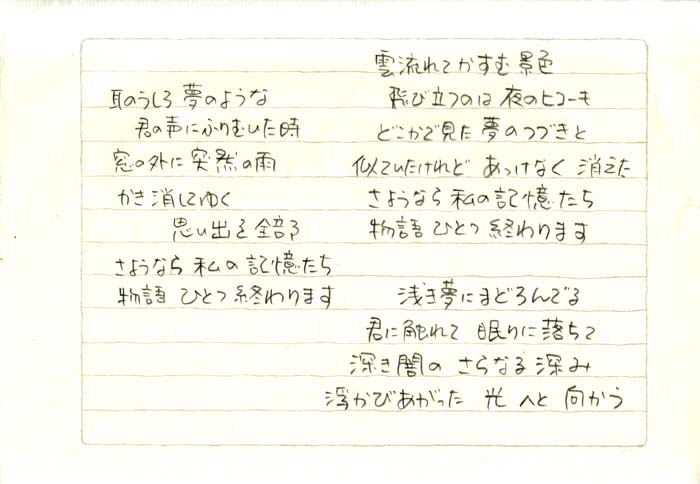 耳のうしろ 夢のような
君の声にふりむいた時
窓の外に 突然の雨
かき消してゆく
思い出を 全部
さようなら 私の 記憶たち
物語 ひとつ 終わります
雲流れてかすむ 景色
飛び立つのは 夜のヒコーキ
どこかで見た 夢のつづきと
似ていたけれど あっけなく 消えた
さようなら 私の記憶たち
物語 ひとつ 終わります
浅き夢にまどろんでる
君に触れて 眠りに落ちて
深き闇の さらなる 深み
浮かびあがった 光 へと 向かう